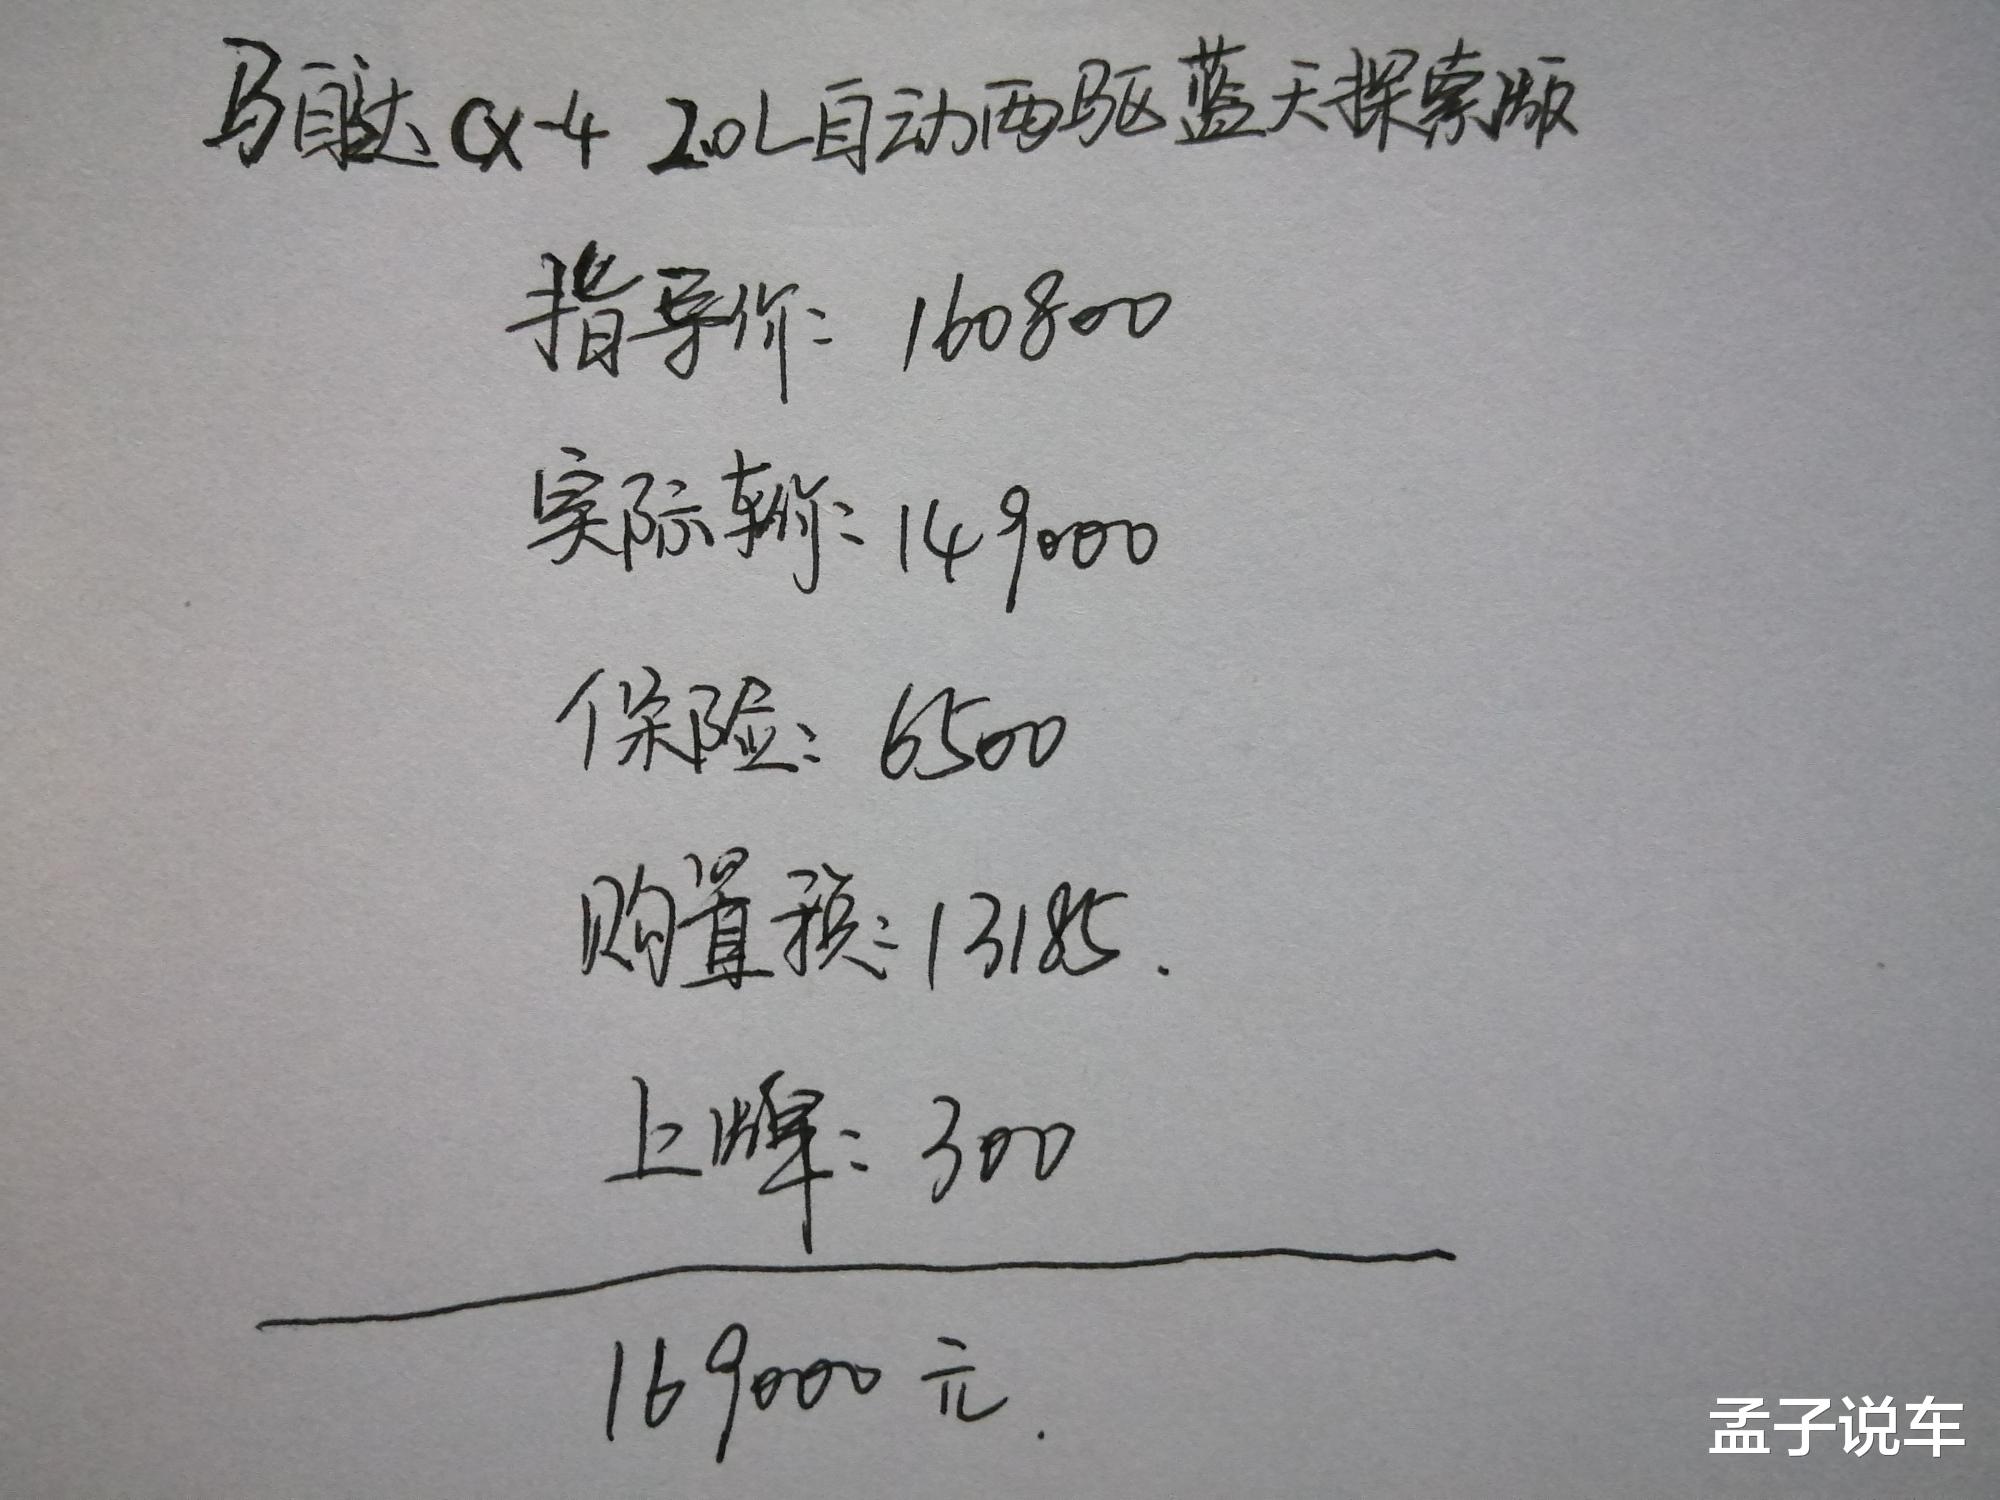 马自达CX-4 2.0L自动两驱蓝天探索版
指导价：160800
实际车价：149000
保险：6500
购置税：13185.
上牌：300
169000元.
孟子说车